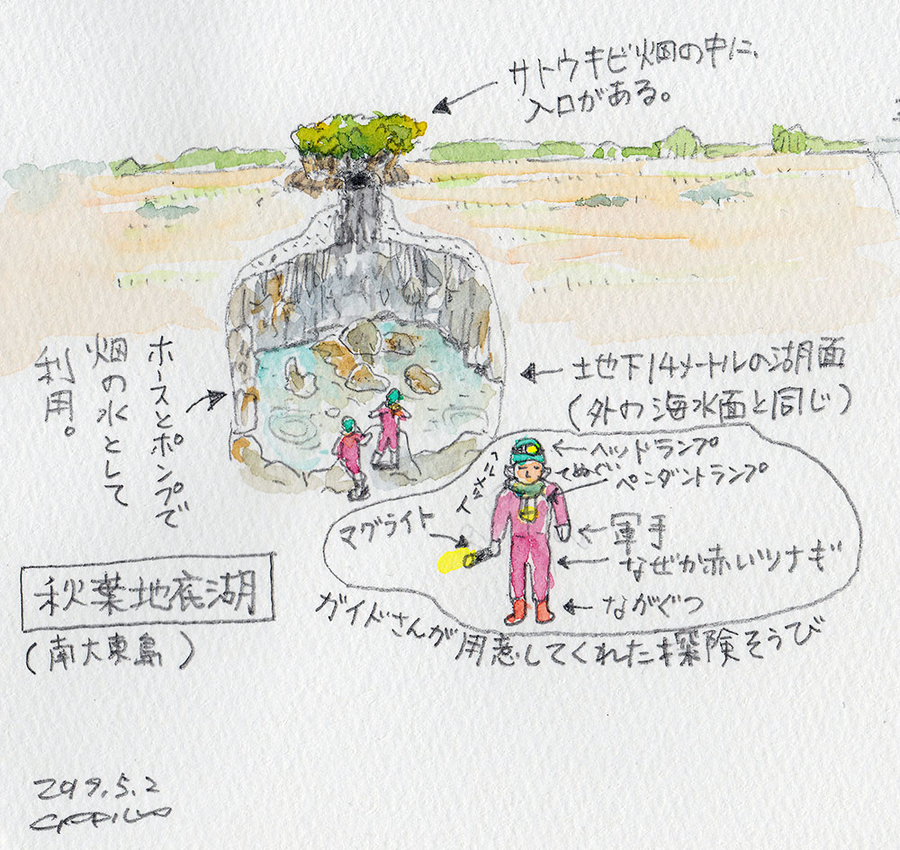 サトウキビ畑の中に、
入口がある。
ホースとポンプで
畑の水として
利用。
土地下14メートルの湖面
(外の海水面と同じ)
ヘッドランプ
ヘルメット
てぬぐい
ペンダントランプ
マグライト
軍手
なぜか赤いツナギ
ながぐつ
ガイドさんが用意してくれた探険そうび
秋葉地底湖
(南大東島)
2019.5.2